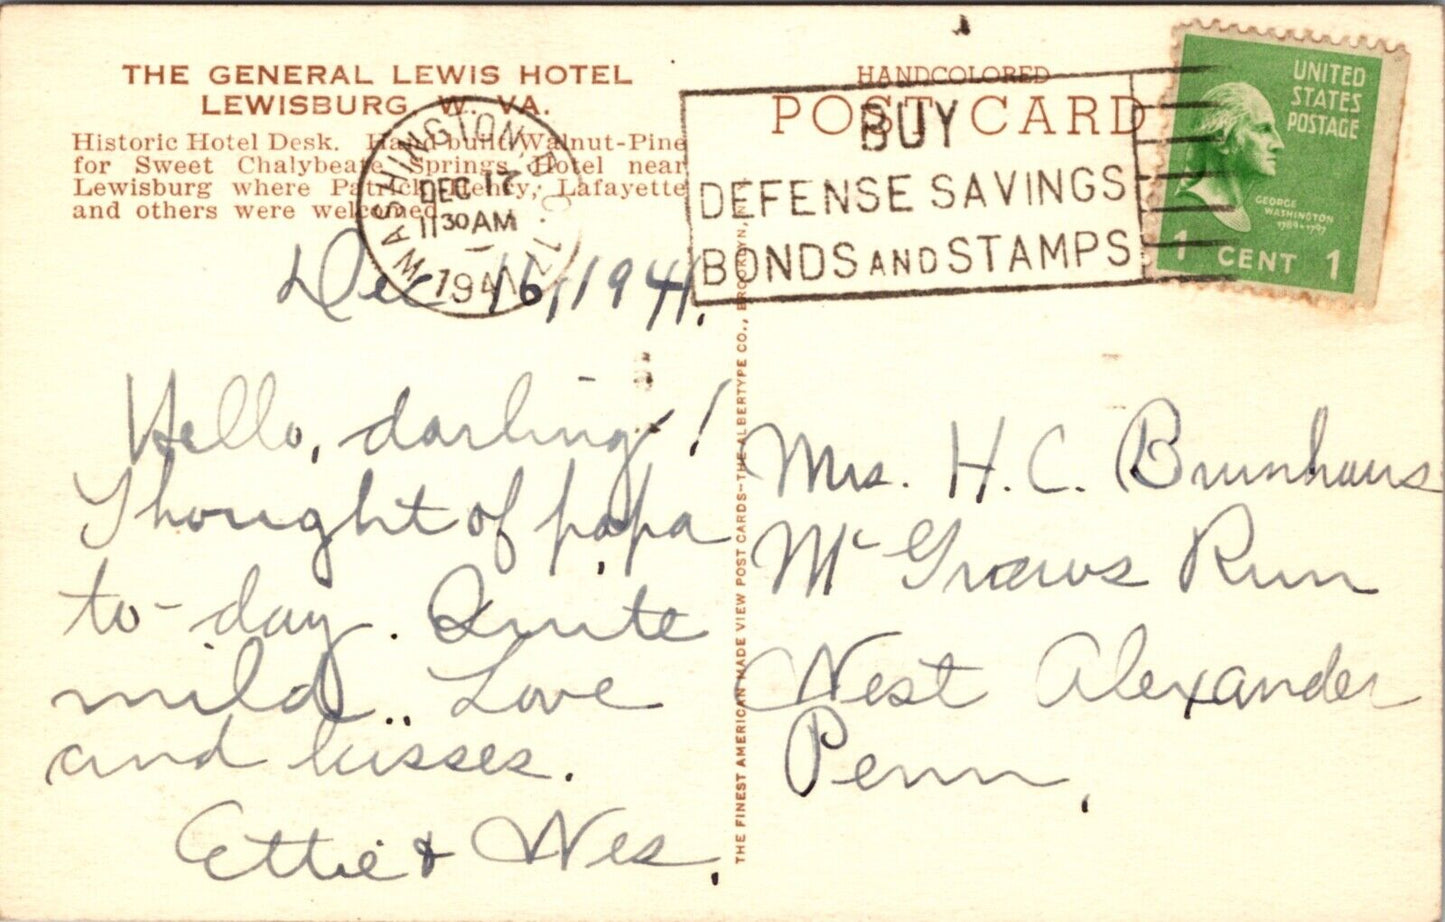 THE GENERAL LEWIS HOTEL
LEWISBURG, W. VA.
Historic Hotel Desk. Hand-built Walnut-Pine
for Sweet Chalybeate Springs Hotel near
Lewisburg where Patrick Henry, Lafayette
and others were welcomed.
WASHINGTON, D.C. 12
DEC 17
11 30 AM
1941
HANDCOLORED
POST CARD
BUY
DEFENSE SAVINGS
BONDS AND STAMPS
UNITED
STATES
POSTAGE
GEORGE
WASHINGTON
1789-1797
1 CENT 1
Dec 16, 1941.
Hello, darling!
Thought of papa
to-day. Quite
mild.. Love
and kisses.
Ettie & Wes.
THE FINEST AMERICAN MADE VIEW POST CARDS--THE ALBERTYPE CO., BROOKLYN, N.
Mrs. H. C. Brunhaus
Mc Graws Run
West Alexander
Penn,